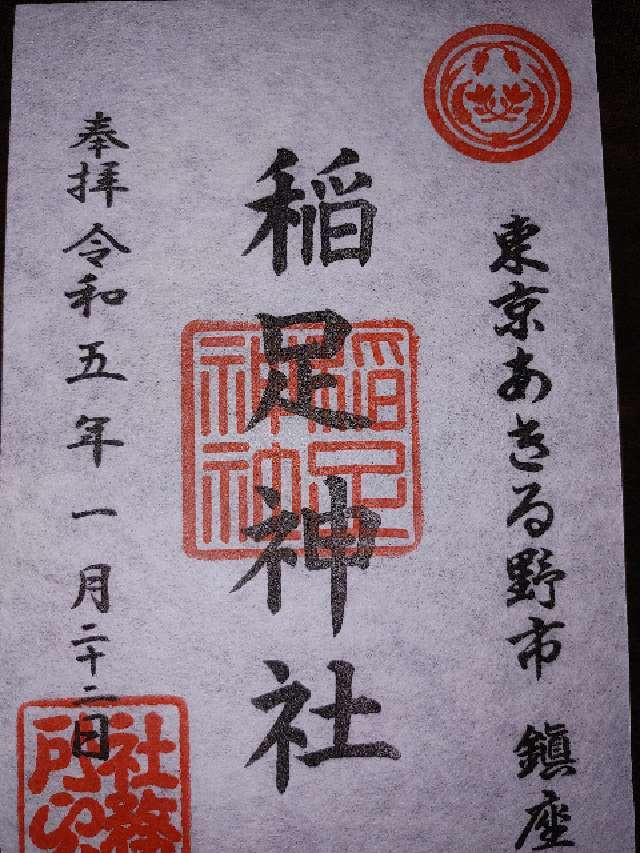 東京あきる野市 鎮座
稲足神社
稲足
神社
奉拝 令和五年一月二十二日
社務
所